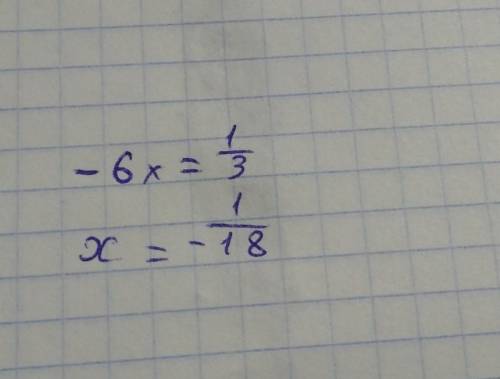 -6x = 1/3
x = -1/18